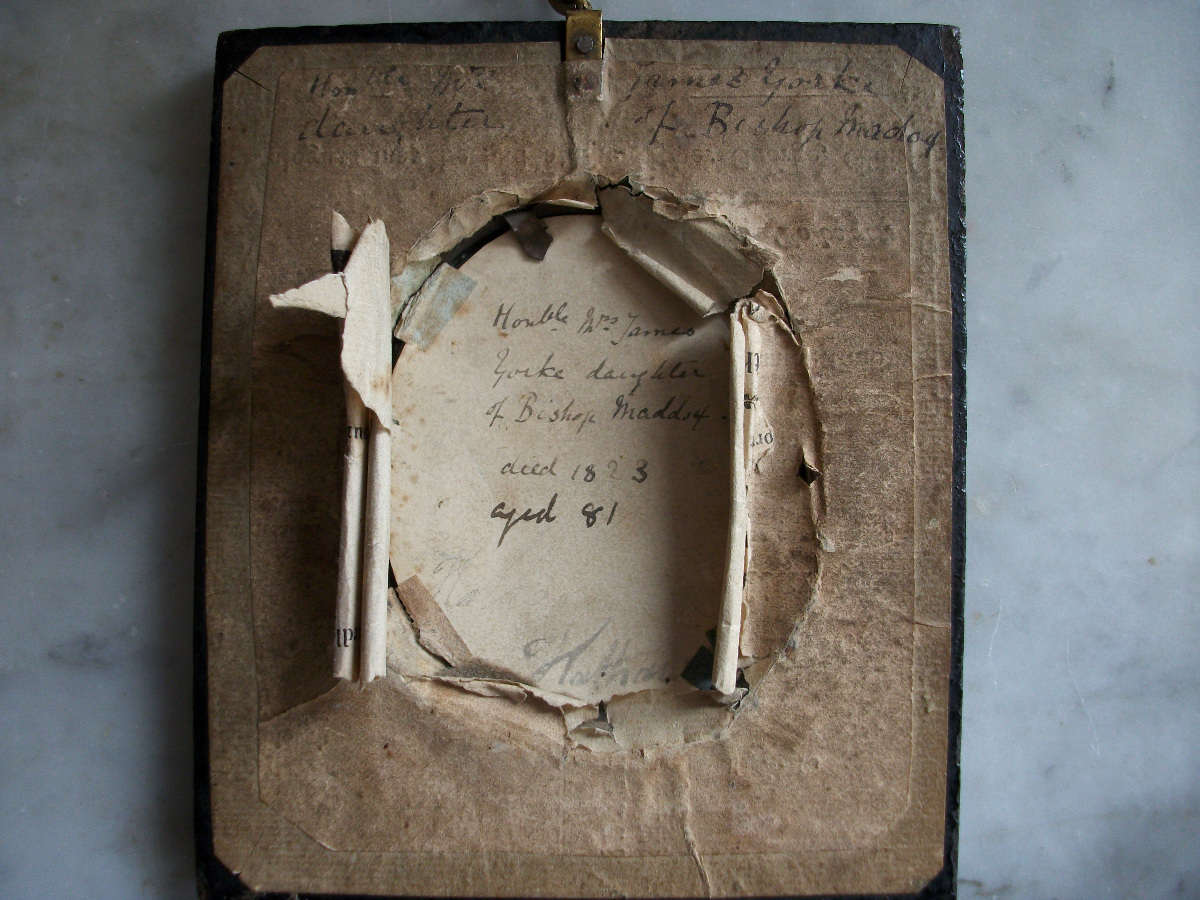 Honble Mrs James Yorke
daughter of Bishop Maddox
Honble Mrs James
Yorke daughter
of Bishop Maddox.
died 1823
aged 81